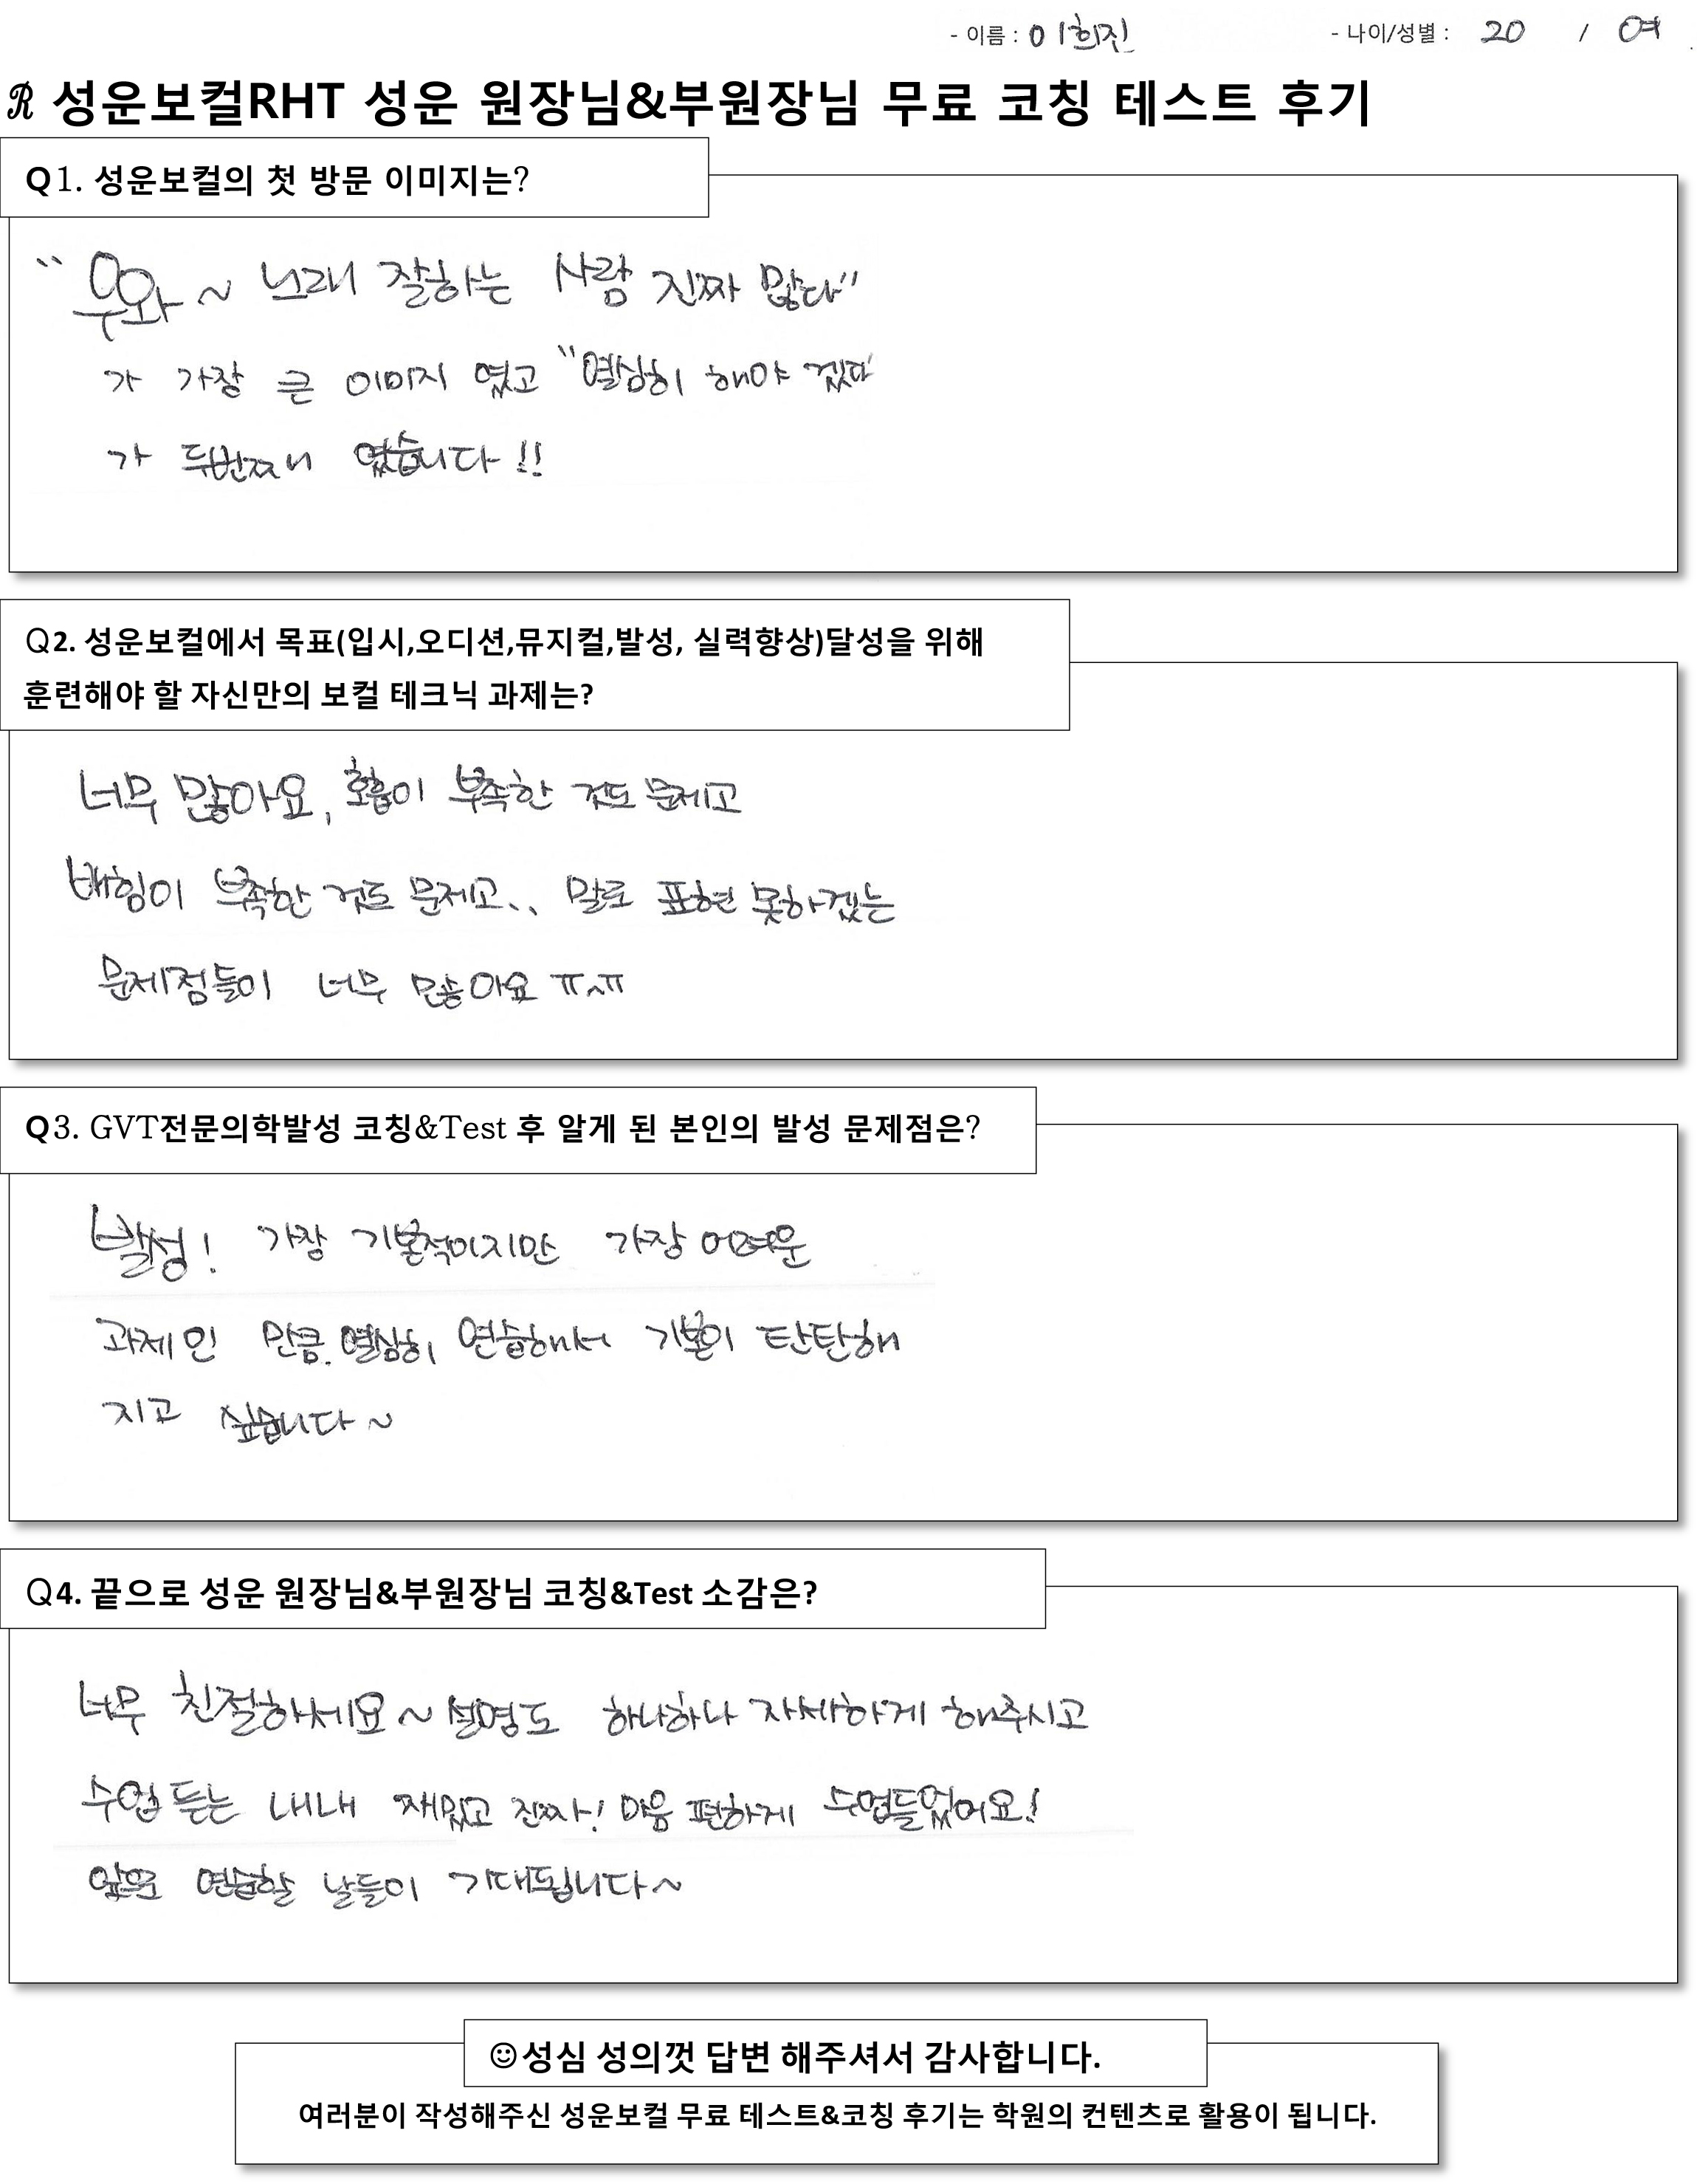 - 이름 : 이희진 - 나이/성별 : 20 / 여
R 성운보컬RHT 성운 원장님&부원장님 무료 코칭 테스트 후기
Q1. 성운보컬의 첫 방문 이미지는?
"우와~ 노래 잘하는 사람 진짜 많다"
가 가장 큰 이미지 였고 "열심히 해야 겠다
가 두번째 였습니다!!
Q2. 성운보컬에서 목표(입시,오디션,뮤지컬,발성, 실력향상)달성을 위해
훈련해야 할 자신만의 보컬 테크닉 과제는?
너무 많아요, 호흡이 부족한 것도 문제고
배힘이 부족한 것도 문제고.. 말로 표현 못하겠는
문제점들이 너무 많아요 ㅠ^ㅠ
Q3. GVT전문의학발성 코칭&Test 후 알게 된 본인의 발성 문제점은?
발성! 가장 기본적이지만 가장 어려운
과제인 만큼. 열심히 연습해서 기본이 탄탄해
지고 싶습니다~
Q4. 끝으로 성운 원장님&부원장님 코칭&Test 소감은?
너무 친절하세요~ 설명도 하나하나 자세하게 해주시고
수업 듣는 내내 재밌고 진짜! 마음 편하게 수업들었어요!
앞으로 연습할 날들이 기대됩니다~
☺성심 성의껏 답변 해주셔서 감사합니다.
여러분이 작성해주신 성운보컬 무료 테스트&코칭 후기는 학원의 컨텐츠로 활용이 됩니다.